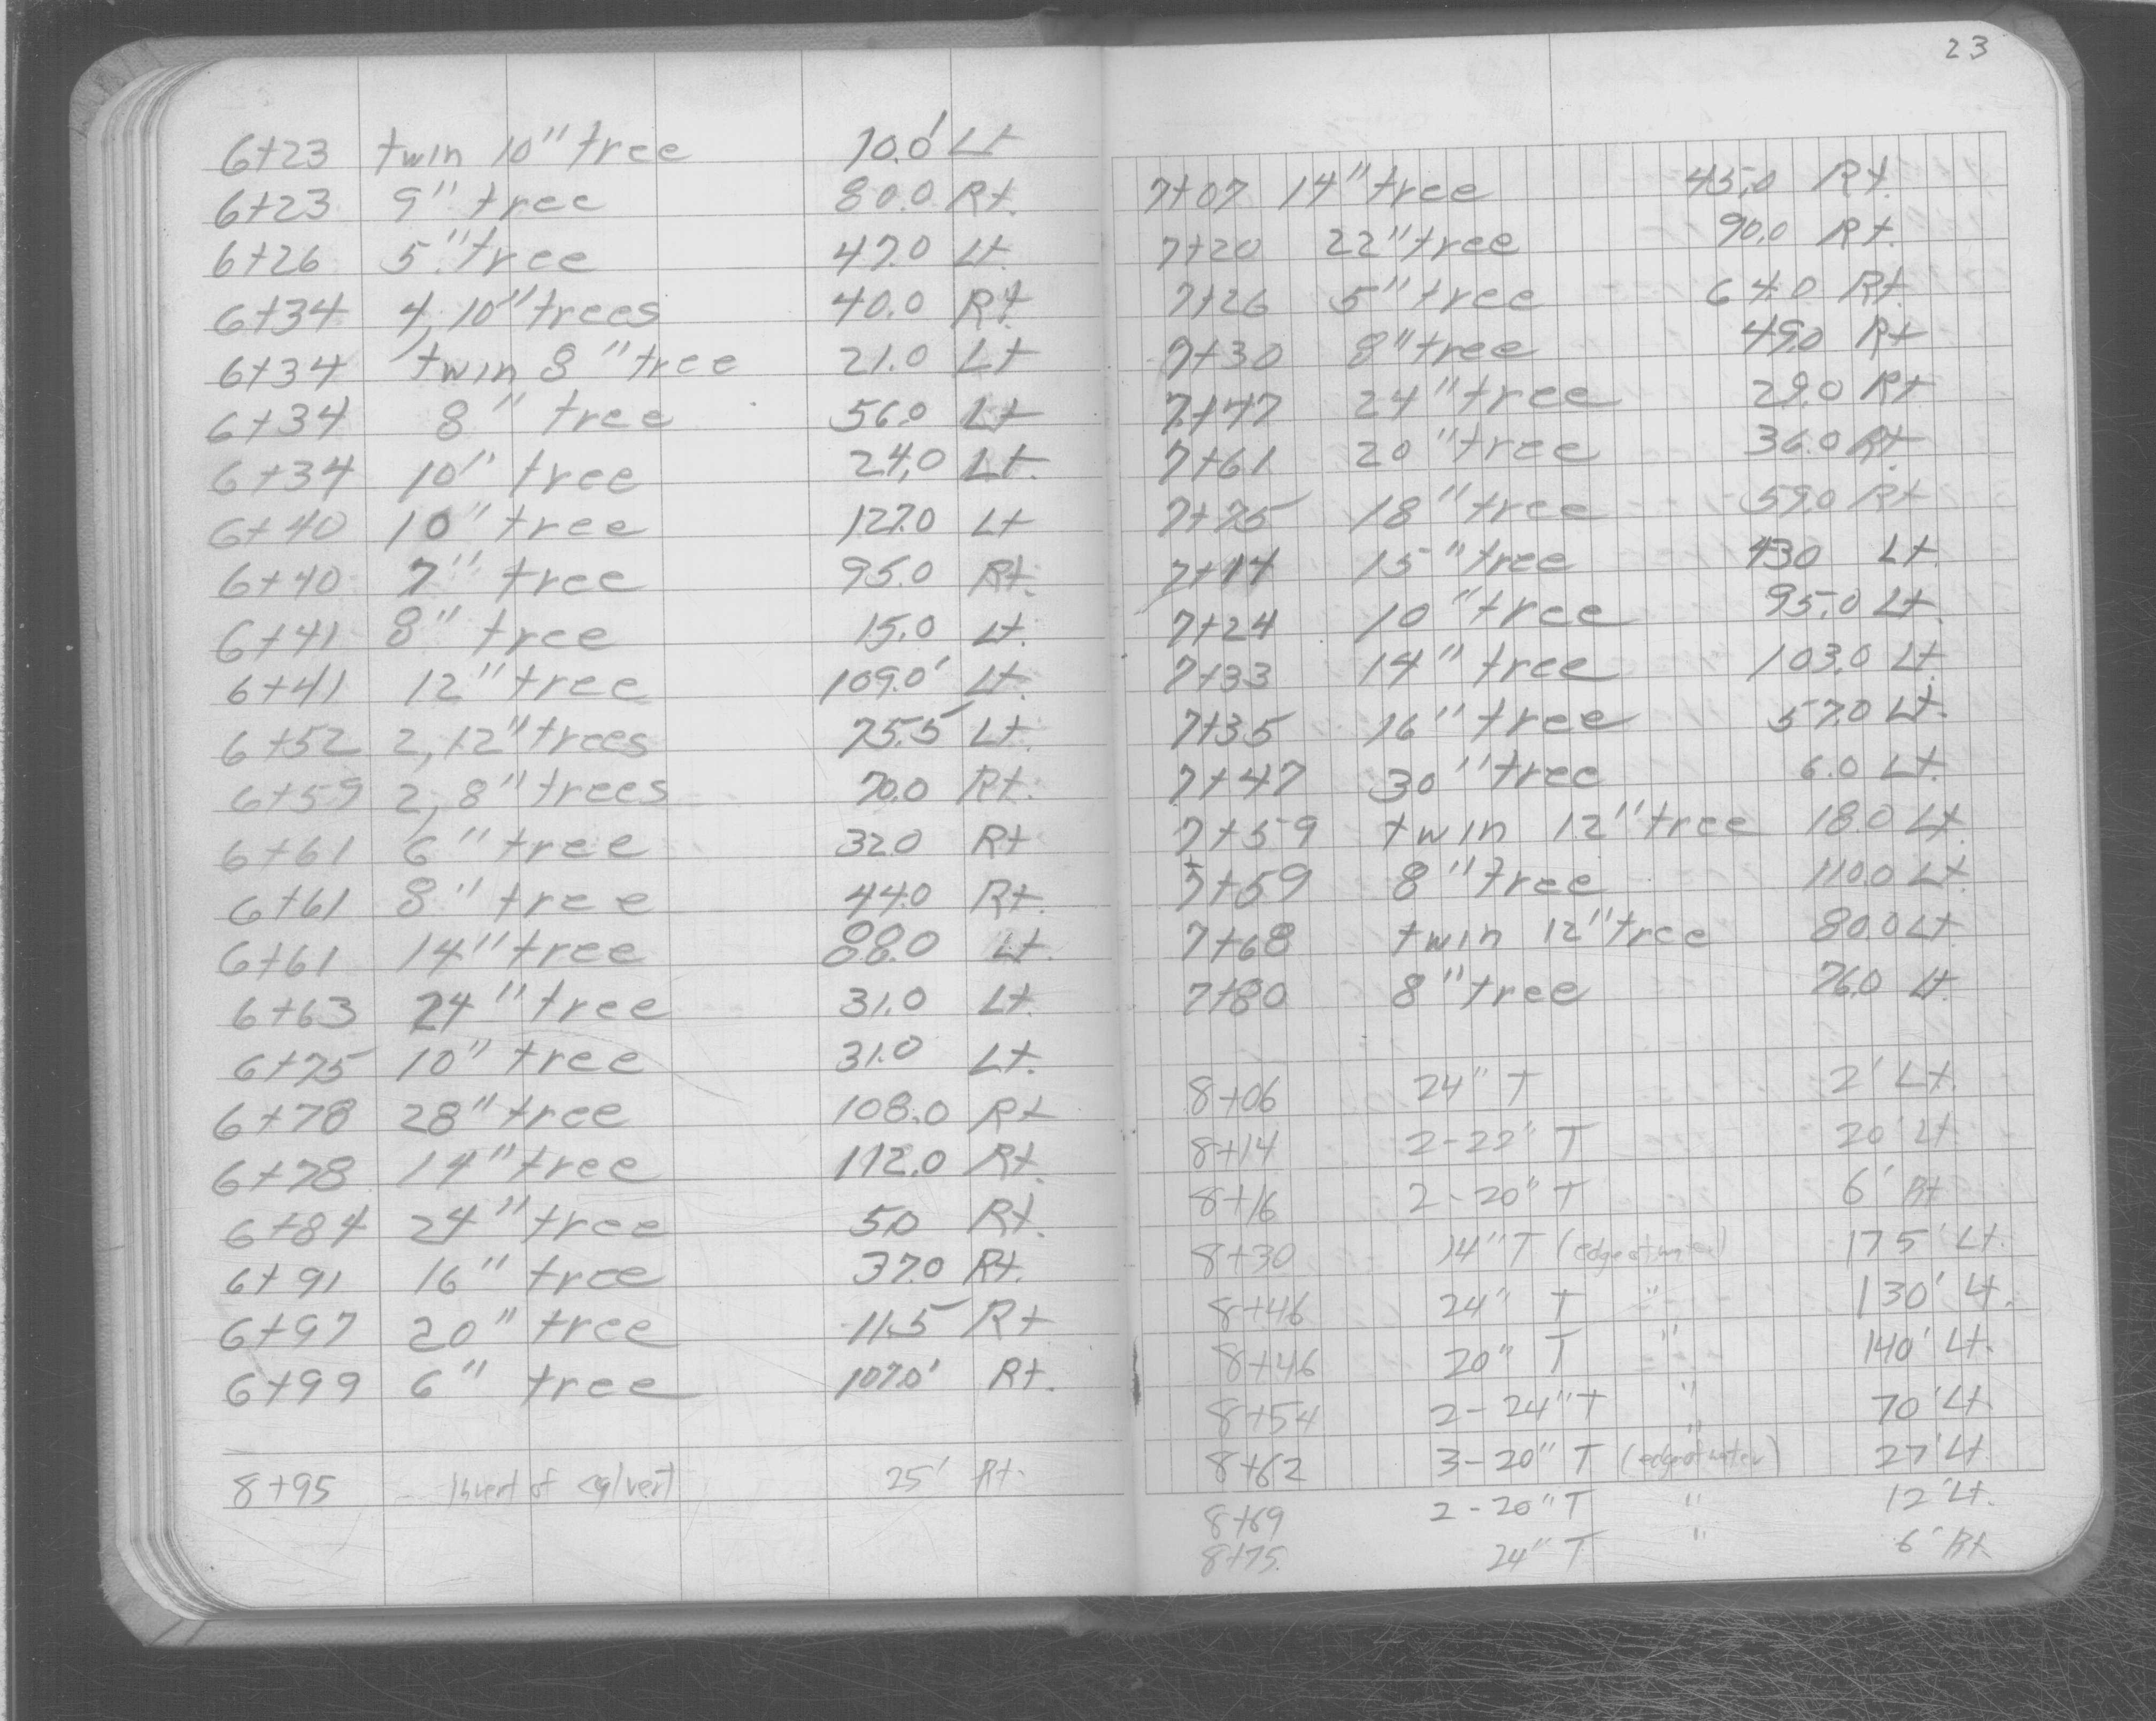 6+23 twin 10" tree 70.0' Lt
6+23 9" tree 80.0 Rt.
6+26 5" tree 47.0 Lt.
6+34 4, 10" trees 40.0 Rt.
6+34 twin 8" tree 21.0 Lt
6+34 8" tree 56.0 Lt
6+34 10" tree 24.0 Lt.
6+40 10" tree 127.0 Lt
6+40 7" tree 95.0 Rt.
6+41 8" tree 15.0 Lt.
6+41 12" tree 109.0' Lt.
6+52 2, 12" trees 75.5 Lt.
6+59 2, 8" trees 70.0 Rt.
6+61 6" tree 32.0 Rt
6+61 8" tree 44.0 Rt.
6+61 14" tree 88.0 Lt.
6+63 24" tree 31.0 Lt.
6+75 10" tree 31.0 Lt.
6+78 28" tree 108.0 Rt
6+78 14" tree 112.0 Rt.
6+84 24" tree 5.0 Rt.
6+91 16" tree 37.0 Rt.
6+97 20" tree 11.5 Rt
6+99 6" tree 107.0' Rt.
8+95 Invert of culvert 25' Rt.
23
7+07 14" tree 45.0 Rt.
7+20 22" tree 90.0 Rt.
7+26 5" tree 64.0 Rt.
7+30 8" tree 49.0 Rt
7+47 24" tree 29.0 Rt
7+61 20" tree 36.0 Rt.
7+75 18" tree 59.0 Rt
7+14 15" tree 43.0 Lt.
7+24 10" tree 95.0 Lt.
7+33 14" tree 103.0 Lt.
7+35 16" tree 57.0 Lt.
7+47 30" tree 6.0 Lt.
7+59 twin 12" tree 18.0 Lt.
7+59 8" tree 110.0 Lt.
7+68 twin 12" tree 80.0 Lt.
7+80 8" tree 76.0 Lt.
8+06 24" T 2' Lt.
8+14 2-22" T 20' Lt.
8+16 2-20" T 6' Rt
8+30 14" T (edge of water) 175' Lt.
8+46 24" T " 130' Lt.
8+46 20" T " 140' Lt.
8+54 2-24" T " 70' Lt.
8+62 3-20" T (edge of water) 27' Lt.
8+69 2-20" T " 12' Lt.
8+75 24" T " 6' Rt